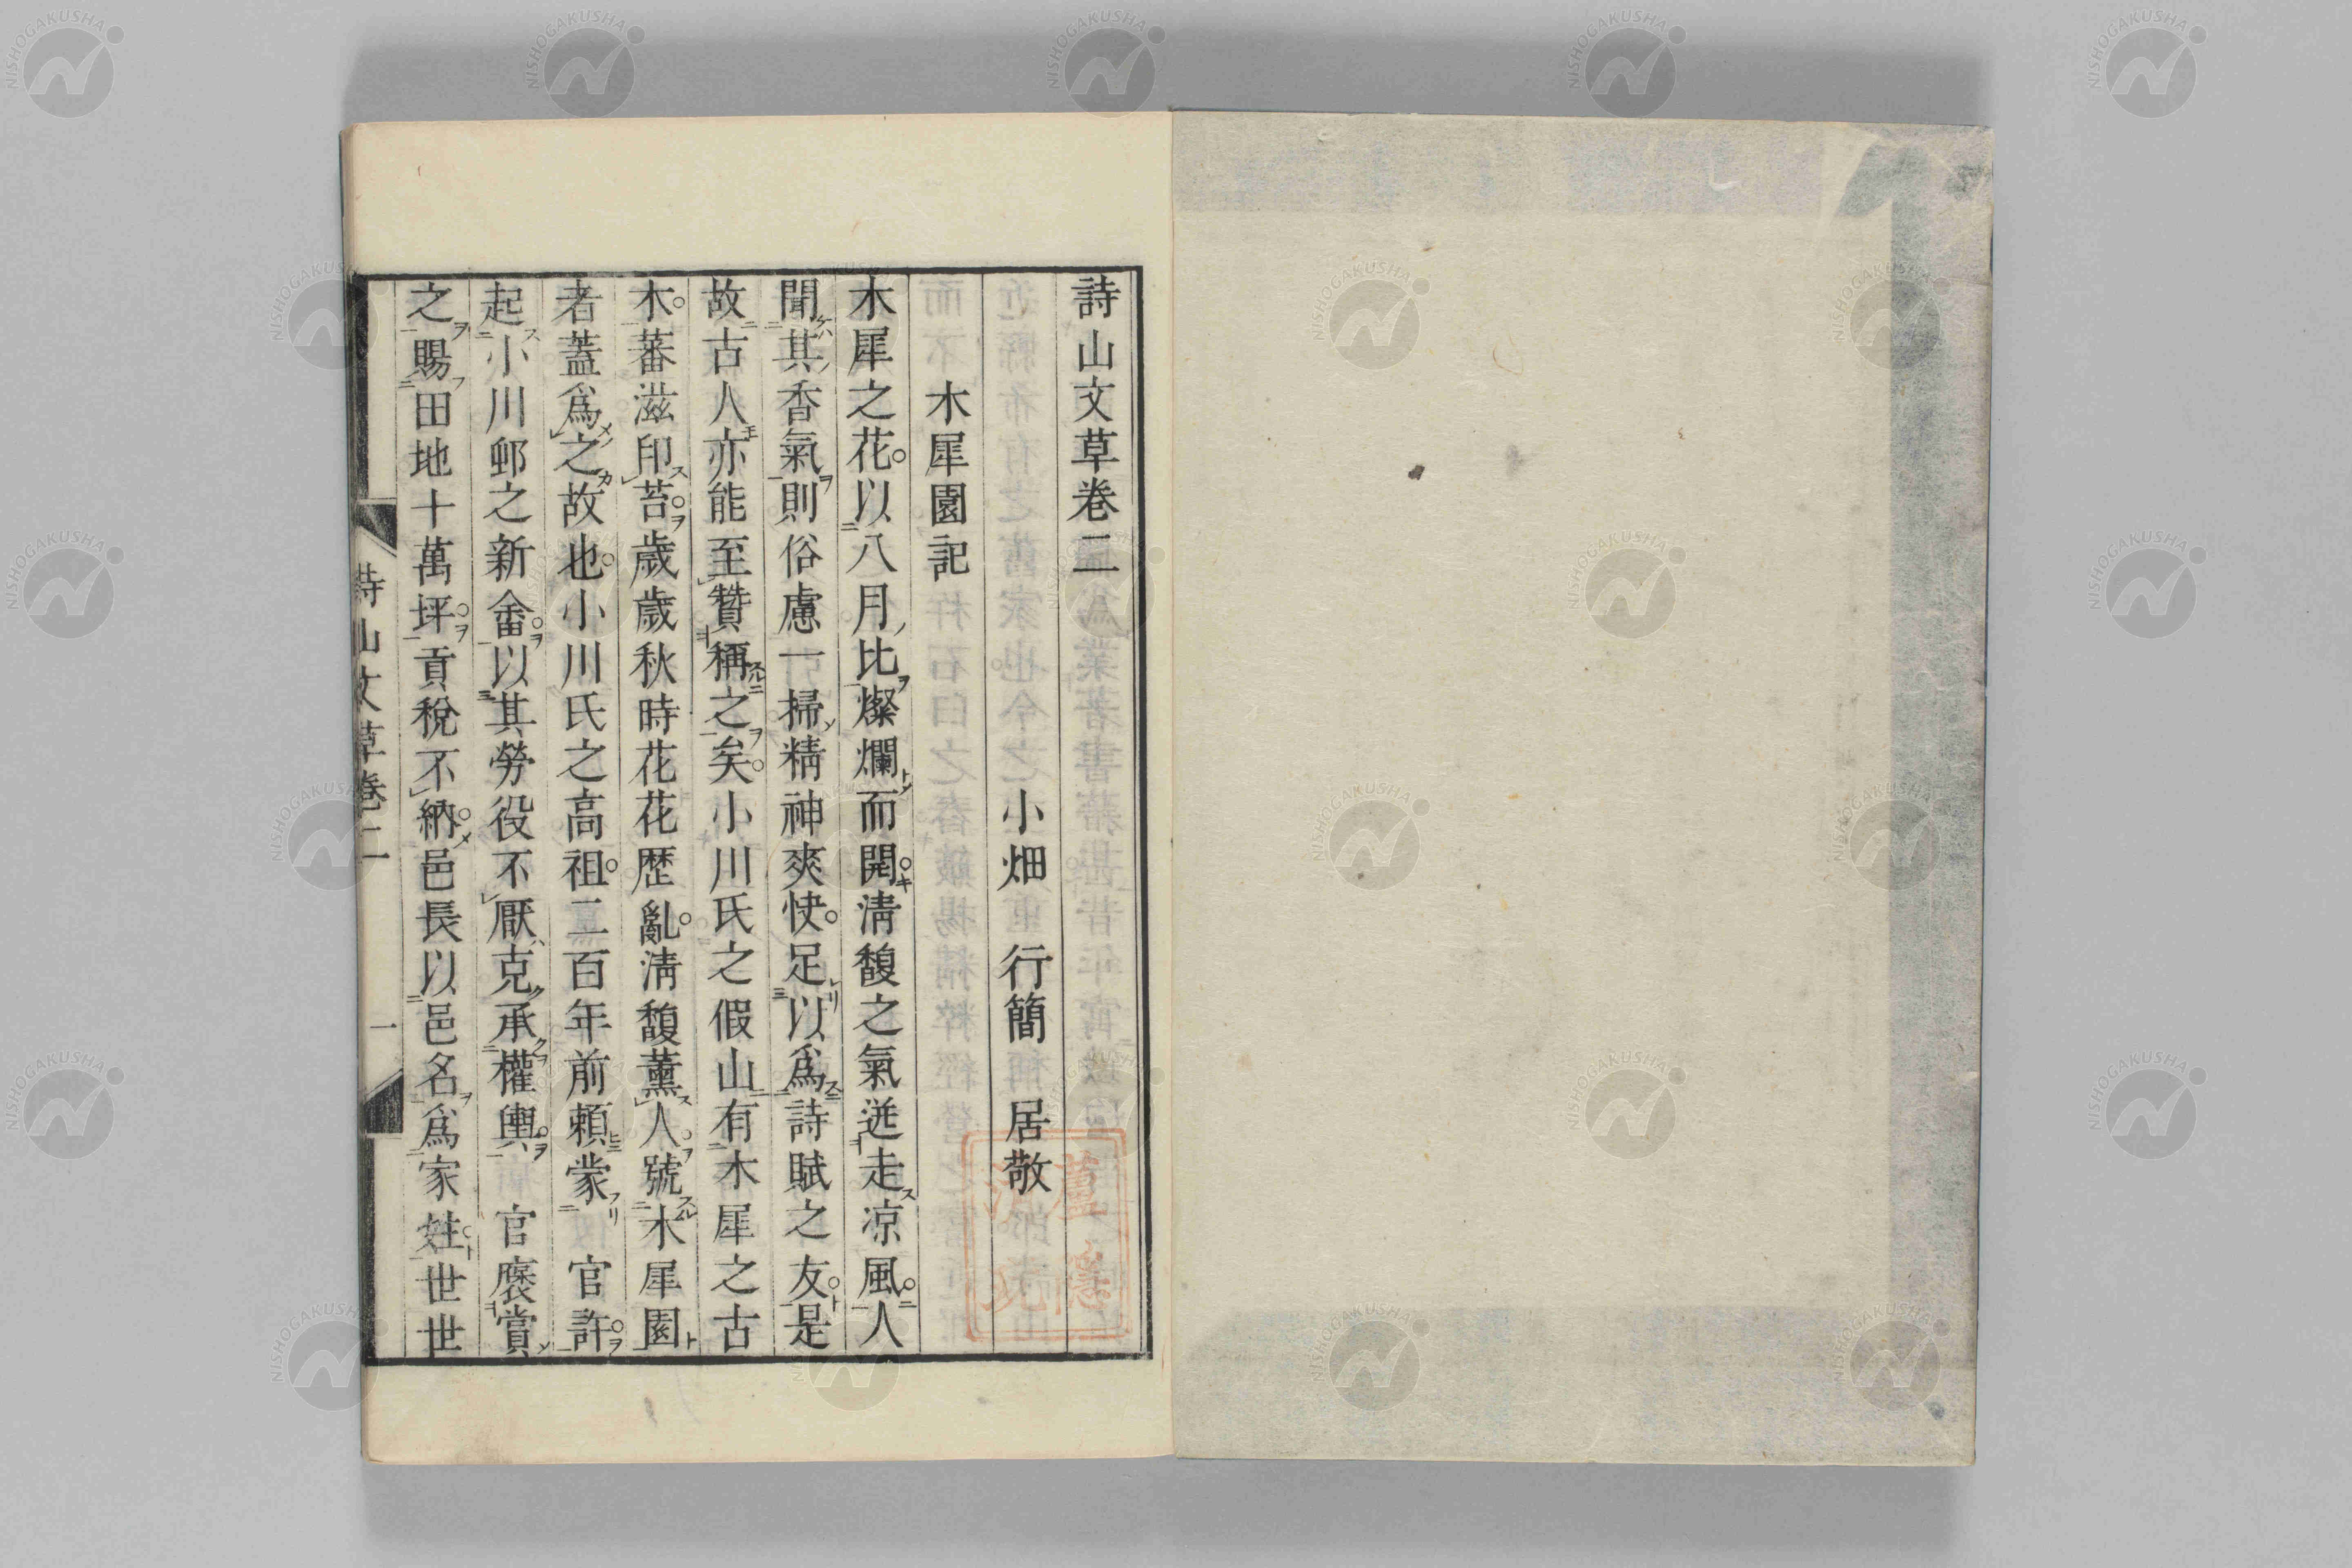 詩山文草卷二
小畑 行簡 居敬
木犀園記
木犀之花以八月比燦爛而開淸馥之氣逬走凉風人
聞其香氣則俗慮一掃精神爽快足以爲詩賦之友是
故古人亦能至贊稱之矣小川氏之假山有木犀之古
木蕃滋印苔歲歲秋時花花歷亂淸馥薰人號木犀園
者蓋爲之故也小川氏之高祖二百年前頼蒙 官許
起小川邨之新畬以其勞役不厭克承權輿 官褒賞
之賜田地十萬坪貢稅不納邑長以邑名爲家姓世世
詩山文草卷二
一
NISHOGAKUSHA